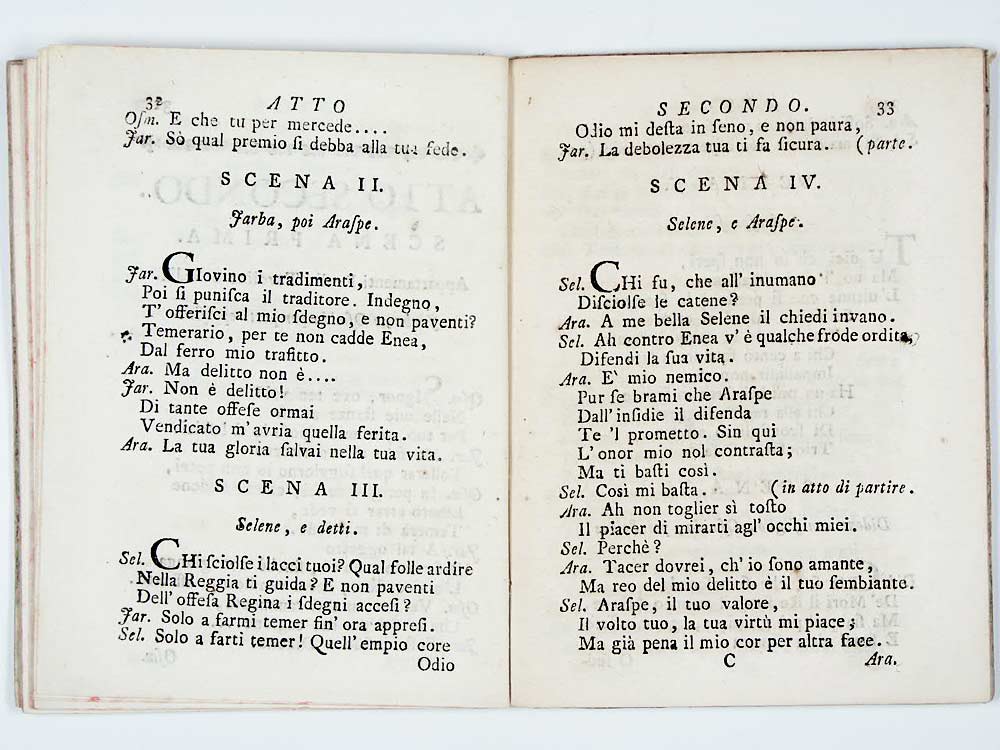 32 ATTO
Oſm. E che tu per mercede....
Jar. Sò qual premio ſi debba alla tua fede.
SCENA II.
Jarba, poi Araſpe.
Jar. GIovino i tradimenti,
Poi ſi puniſca il traditore. Indegno,
T' offeriſci al mio ſdegno, e non paventi?
Temerario, per te non cadde Enea,
Dal ferro mio trafitto.
Ara. Ma delitto non è....
Jar. Non è delitto!
Di tante offeſe ormai
Vendicato m'avria quella ferita.
Ara. La tua gloria ſalvai nella tua vita.
SCENA III.
Selene, e detti.
Sel. CHi ſciolſe i lacci tuoi? Qual folle ardire
Nella Reggia ti guida? E non paventi
Dell' offeſa Regina i ſdegni acceſi?
Jar. Solo a farmi temer ſin' ora appreſi.
Sel. Solo a farti temer! Quell'empio core
Odio
SECONDO. 33
Odio mi deſta in ſeno, e non paura,
Jar. La debolezza tua ti fa ſicura. (parte.
SCENA IV.
Selene, e Araſpe.
Sel. CHi fu, che all' inumano
Diſciolſe le catene?
Ara. A me bella Selene il chiedi invano.
Sel. Ah contro Enea v' è qualche frode ordita,
Difendi la ſua vita.
Ara. E' mio nemico.
Pur ſe brami che Araſpe
Dall' inſidie il difenda
Te 'l prometto. Sin qui
L' onor mio nol contraſta;
Ma ti baſti così.
Sel. Così mi baſta. (in atto di partire.
Ara. Ah non toglier sì toſto
Il piacer di mirarti agl' occhi miei.
Sel. Perchè?
Ara. Tacer dovrei, ch' io ſono amante,
Ma reo del mio delitto è il tuo ſembiante.
Sel. Araſpe, il tuo valore,
Il volto tuo, la tua virtù mi piace;
Ma già pena il mio cor per altra face.
C Ara.